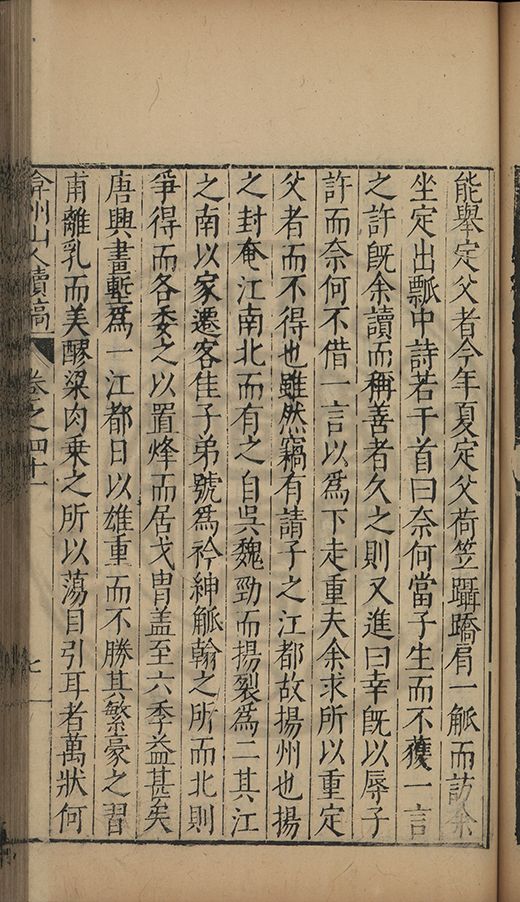 能舉定父者今年夏定父荷笠躡蹻肩一觚而訪余
坐定出瓢中詩若干首曰奈何當子生而不獲一言
之許旣余讀而稱善者久之則又進曰幸旣以辱子
許而奈何不借一言以爲下走重夫余求所以重定
父者而不得也雖然竊有請子之江都故揚州也揚
之封奄江南北而有之自吳魏勁而揚裂爲二其江
之南以家遷客佳子弟號爲衿紳觚翰之所而北則
爭得而各委之以置烽而居戈冑盖至六季益甚矣
唐興畫塹爲一江都日以雄重而不勝其繁豪之習
甫離乳而美醪粱肉乗之所以蕩目引耳者萬狀何
弇州山人續稿 卷之四十一 七